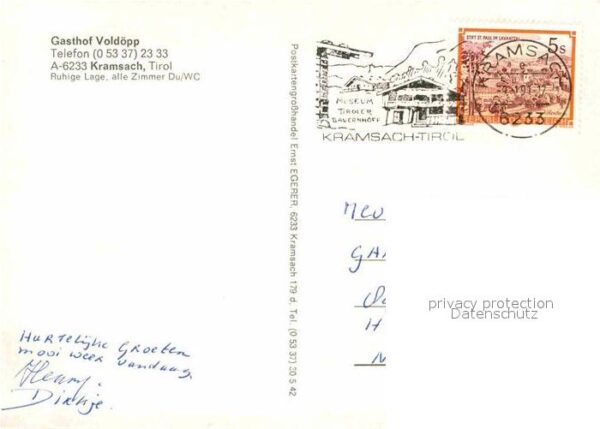 Gasthof Voldöpp
Telefon (0 53 37) 23 33
A-6233 Kramsach, Tirol
Ruhige Lage, alle Zimmer Du/WC
Postkartengroßhandel Ernst EGERER, 6233 Kramsach 179 d, Tel. (0 53 37) 30 5 42
MUSEUM
TIROLER
BAUERNHÖFE
KRAMSACH-TIROL
STIFT ST. PAUL IM LAVANTTAL
5s
KRAMSACH
6233
Mev
GA
H
privacy protection
Datenschutz
Hartelijke Groeten
mooi weer vandaag
Henry.
Dirkje.